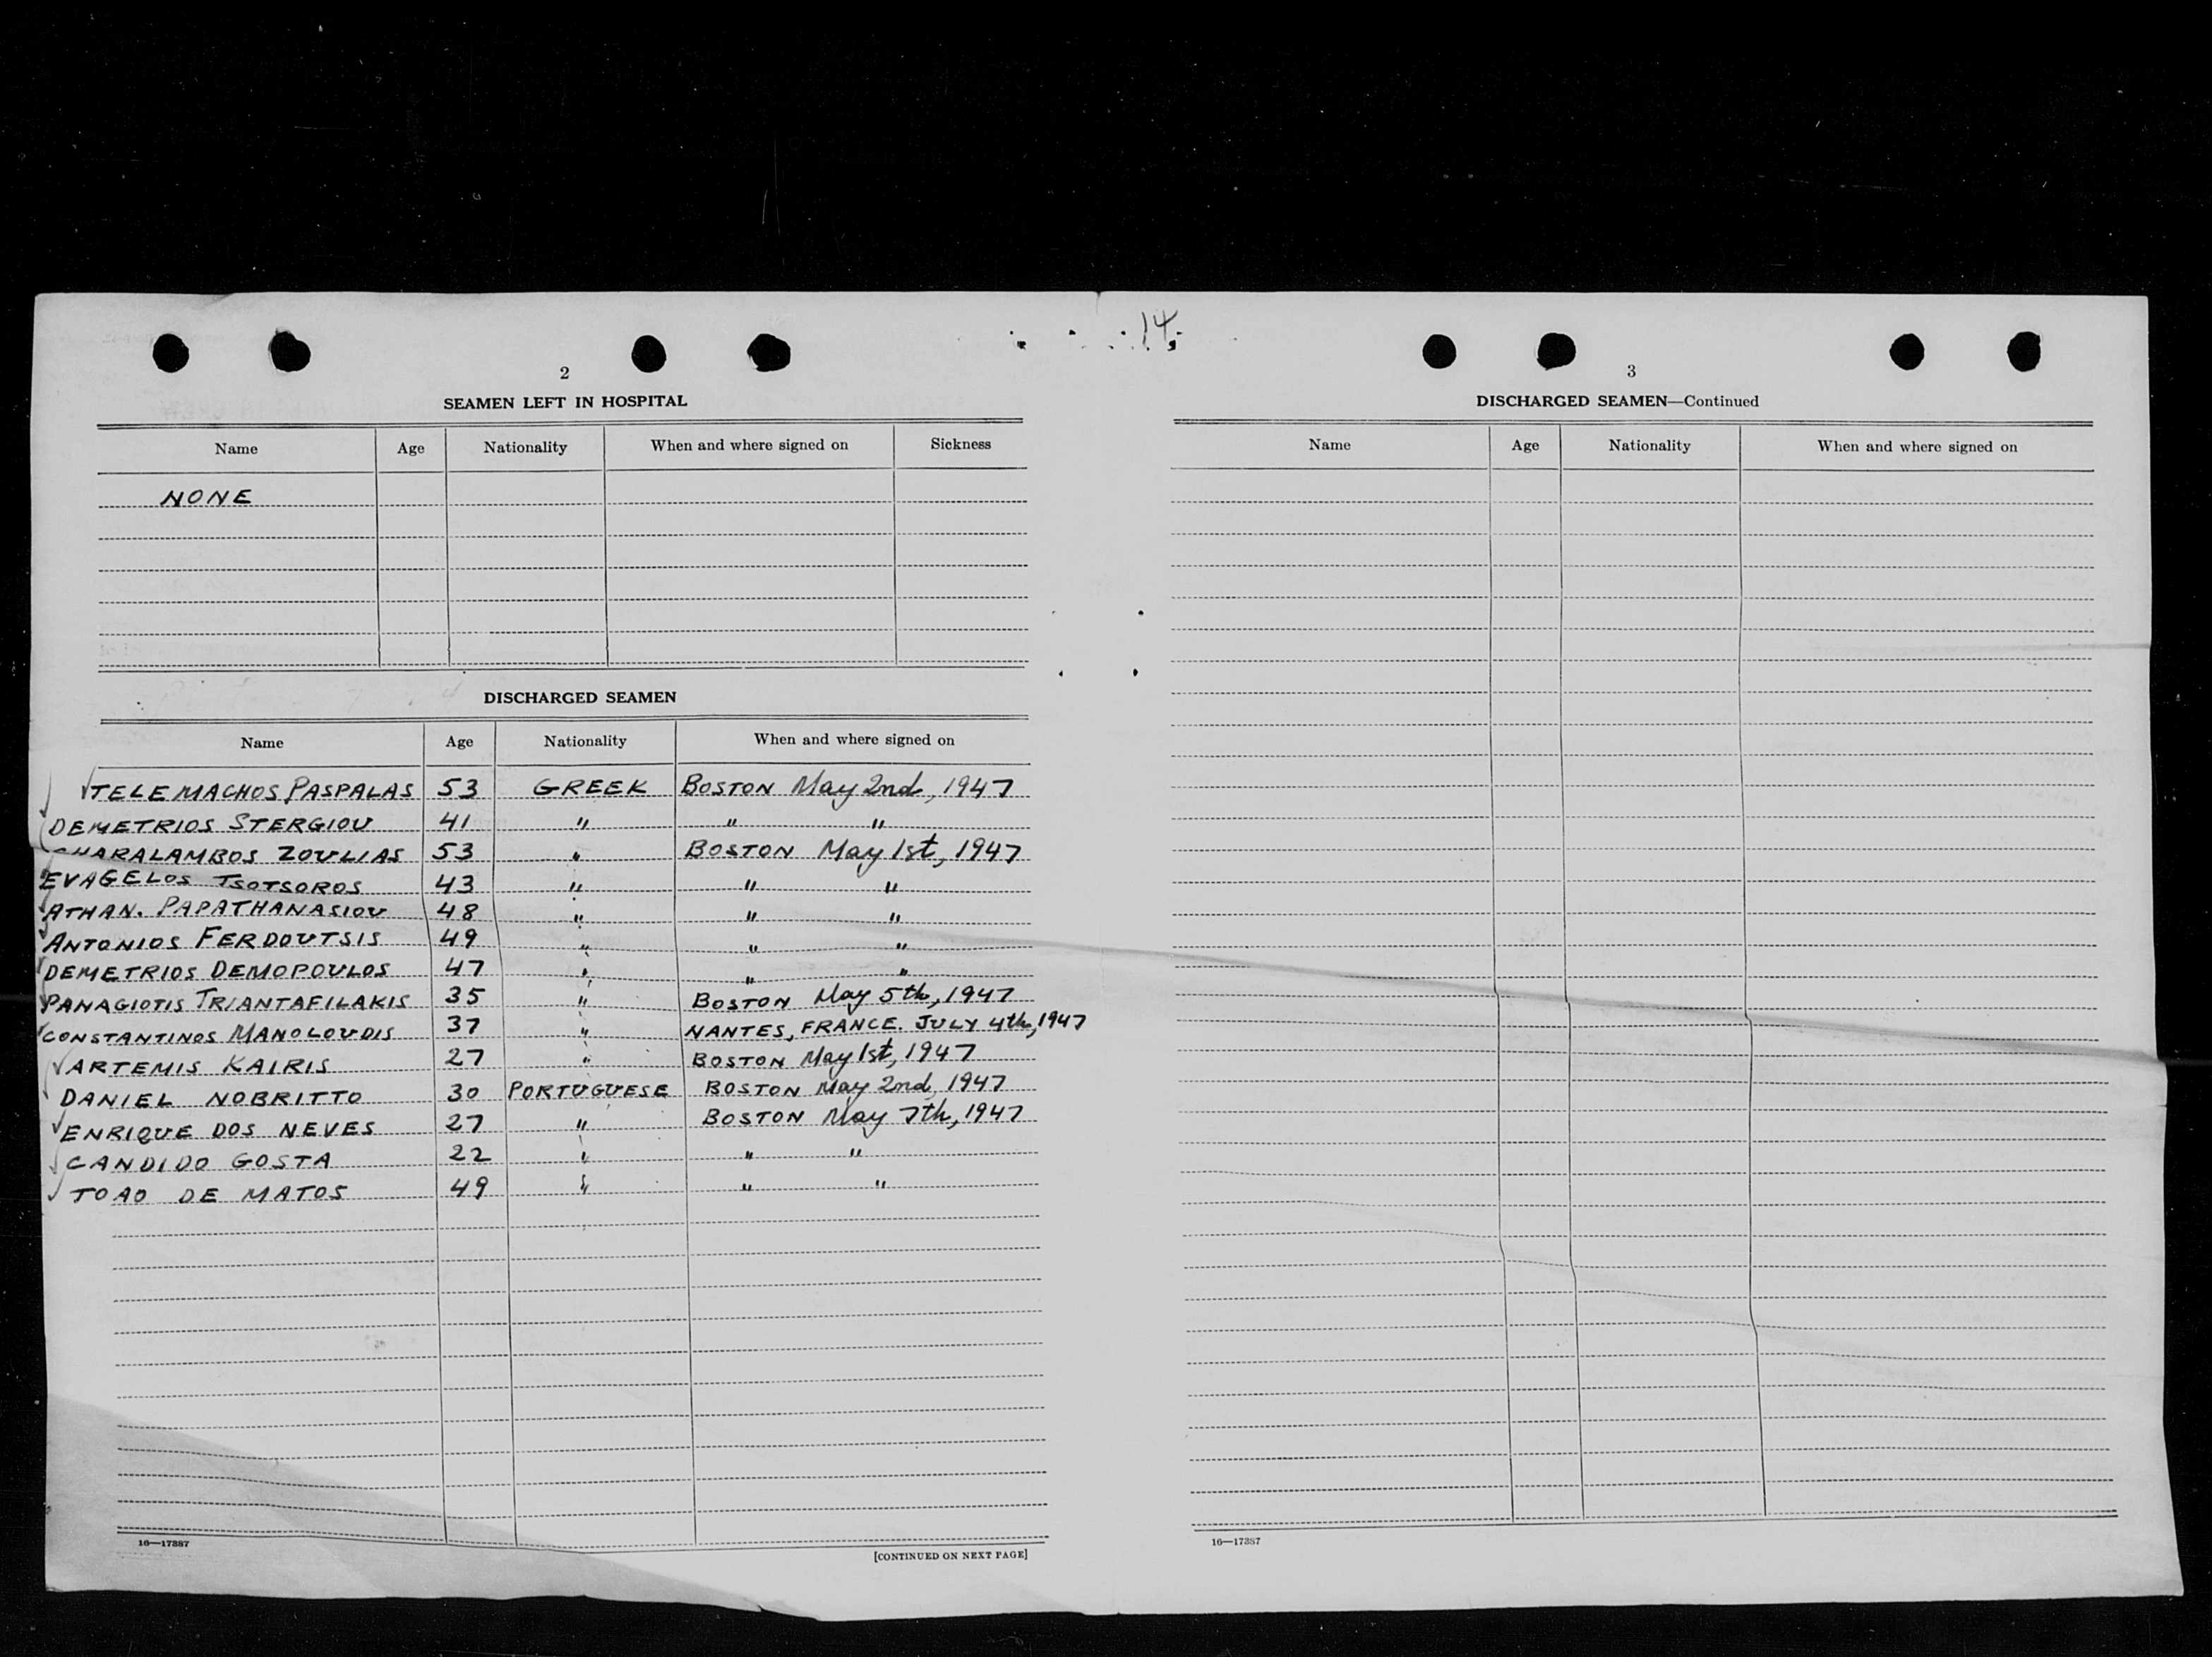 14
2
SEAMEN LEFT IN HOSPITAL
Name Age Nationality When and where signed on Sickness
NONE
DISCHARGED SEAMEN
Name Age Nationality When and where signed on
TELEMACHOS PASPALAS 53 GREEK BOSTON May 2nd, 1947
DEMETRIOS STERGIOU 41 " " "
CHARALAMBOS ZOULIAS 53 " BOSTON May 1st, 1947
EVAGELOS TSOTSOROS 43 " " "
ATHAN. PAPATHANASIOU 48 " " "
ANTONIOS FERDOUTSIS 49 " " "
DEMETRIOS DEMOPOULOS 47 " " "
PANAGIOTIS TRIANTAFILAKIS 35 " BOSTON May 5th, 1947
CONSTANTINOS MANOLOUDIS 37 " NANTES, FRANCE. JULY 4th, 1947
ARTEMIS KAIRIS 27 " BOSTON May 1st, 1947
DANIEL NOBRITTO 30 PORTUGUESE BOSTON May 2nd, 1947
ENRIQUE DOS NEVES 27 " BOSTON May 7th, 1947
CANDIDO GOSTA 22 " " "
TOAO DE MATOS 49 " " "
16—17387
[CONTINUED ON NEXT PAGE]
3
DISCHARGED SEAMEN—Continued
Name Age Nationality When and where signed on
16—17387